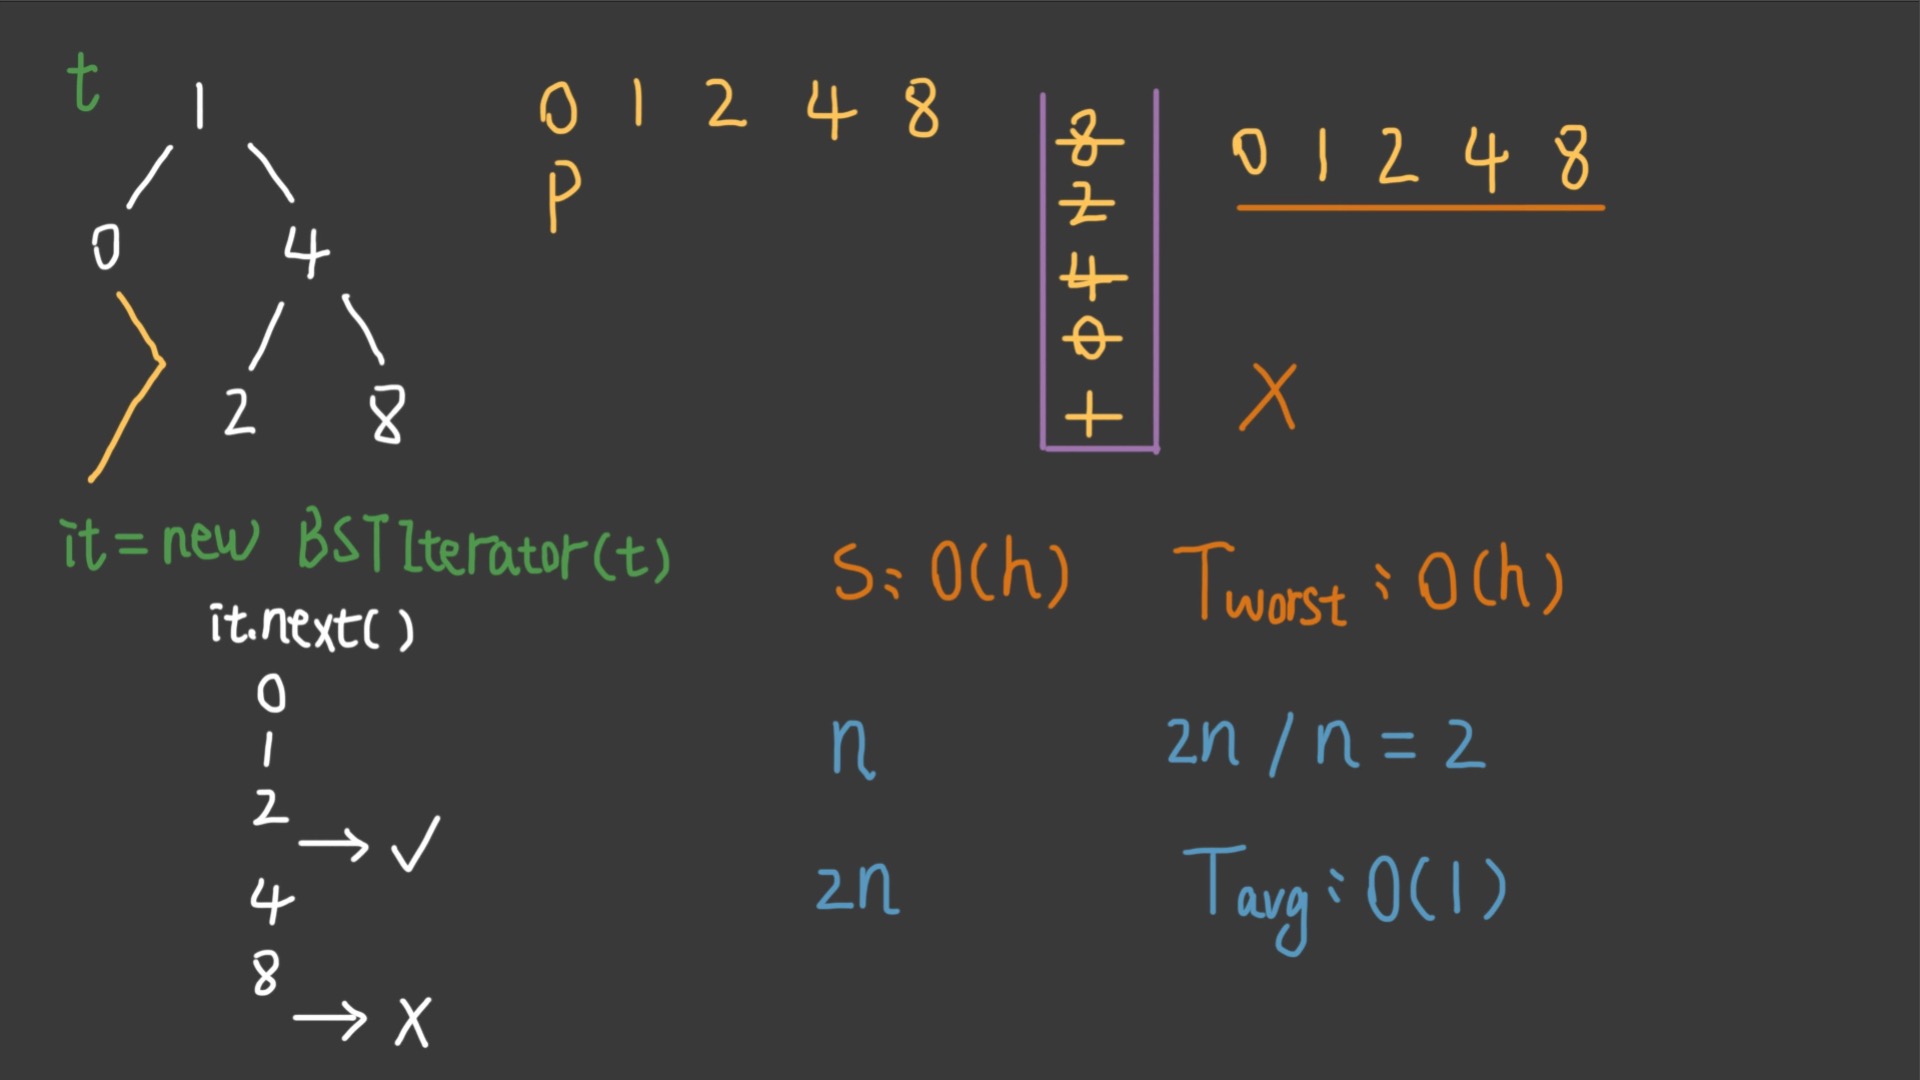 t
1
0 4
2 8
0 1 2 4 8
P
8
2
4
0
1
0 1 2 4 8
X
it = new BSTIterator(t)
it.next()
0
1
2
→ ✓
4
8
→ X
S: O(h) Tworst: O(h)
n 2n / n = 2
2n Tavg: O(1)